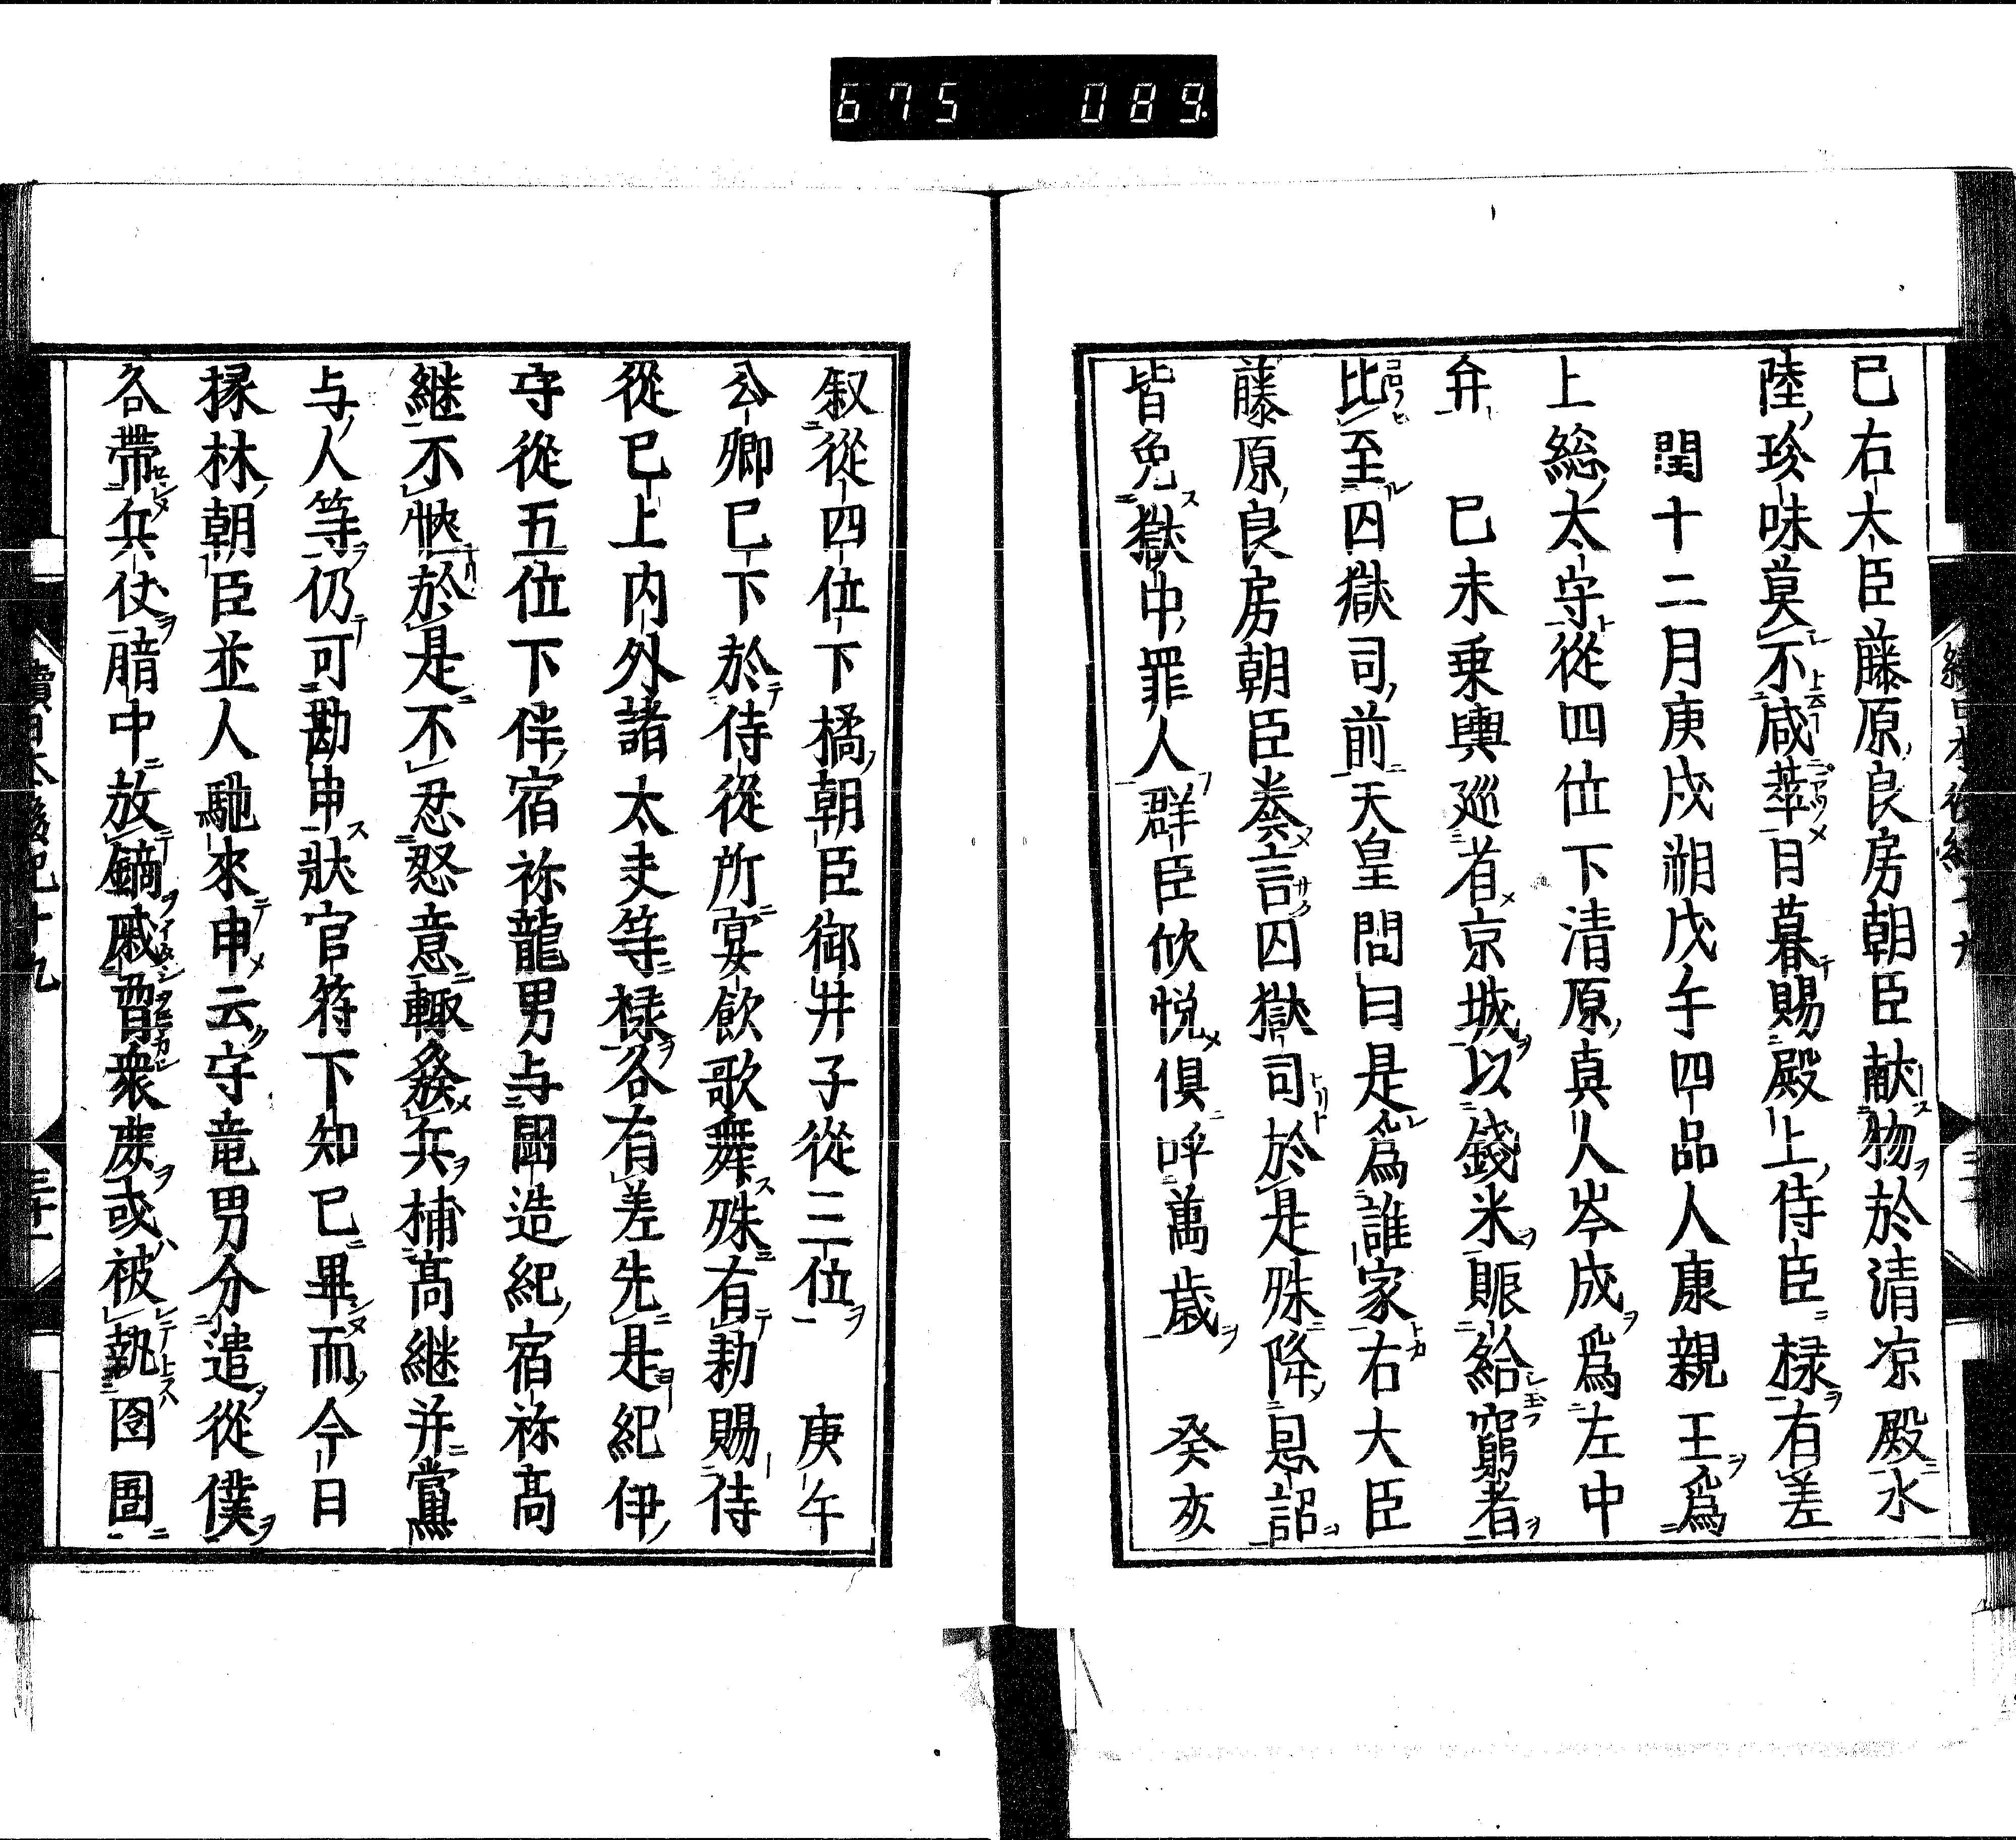 675 089
巳右大臣藤原良房朝臣献物於清凉殿水
陸珍味莫不咸萃日暮賜殿上侍臣禄有差
閏十二月庚戌朔戊午四品人康親王爲
上総太守從四位下清原真人岑成爲左中
弁 巳未乗輿巡省京城以錢米賑給窮者
比至囚獄司前天皇問曰是爲誰家右大臣
藤原良房朝臣奏言囚獄司於是殊降恩詔
皆免獄中罪人群臣欣悦俱呼萬歳 癸亥
叙從四位下橘朝臣御井子從三位 庚午
公卿巳下於侍從所宴飲歌舞殊有勅賜侍
從巳上内外諸太夫等禄各有差先是紀伊
守從五位下伴宿祢龍男与國造紀宿祢髙
継不愜於是不忍怒意輙發兵捕髙継并黨
与人等仍可勘申狀官符下知巳畢而今日
掾林朝臣並人馳來申云守竜男分遣從僕
各帶兵仗暗中放鏑威脅衆庶或被執囹圄
續日本後紀十九